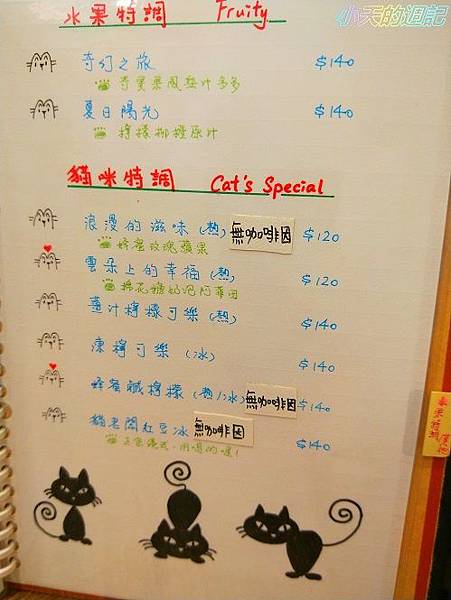 小天的週記
水果特調 Fruity
奇幻之旅 $140
百香果鳳梨汁多多
夏日陽光 $140
檸檬柳橙原汁
貓咪特調 Cat's Special
浪漫的滋味(熱) 無咖啡因 $120
蜂蜜玫瑰蘋果
雲朵上的幸福(熱) $120
棉花糖奶泡阿華田
薑汁檸檬可樂(熱) $140
凍檸可樂(冰) $140
蜂蜜鹹檸檬(熱/冰) 無咖啡因 $140
貓老闆紅豆冰 無咖啡因 $140
用喝的喔!